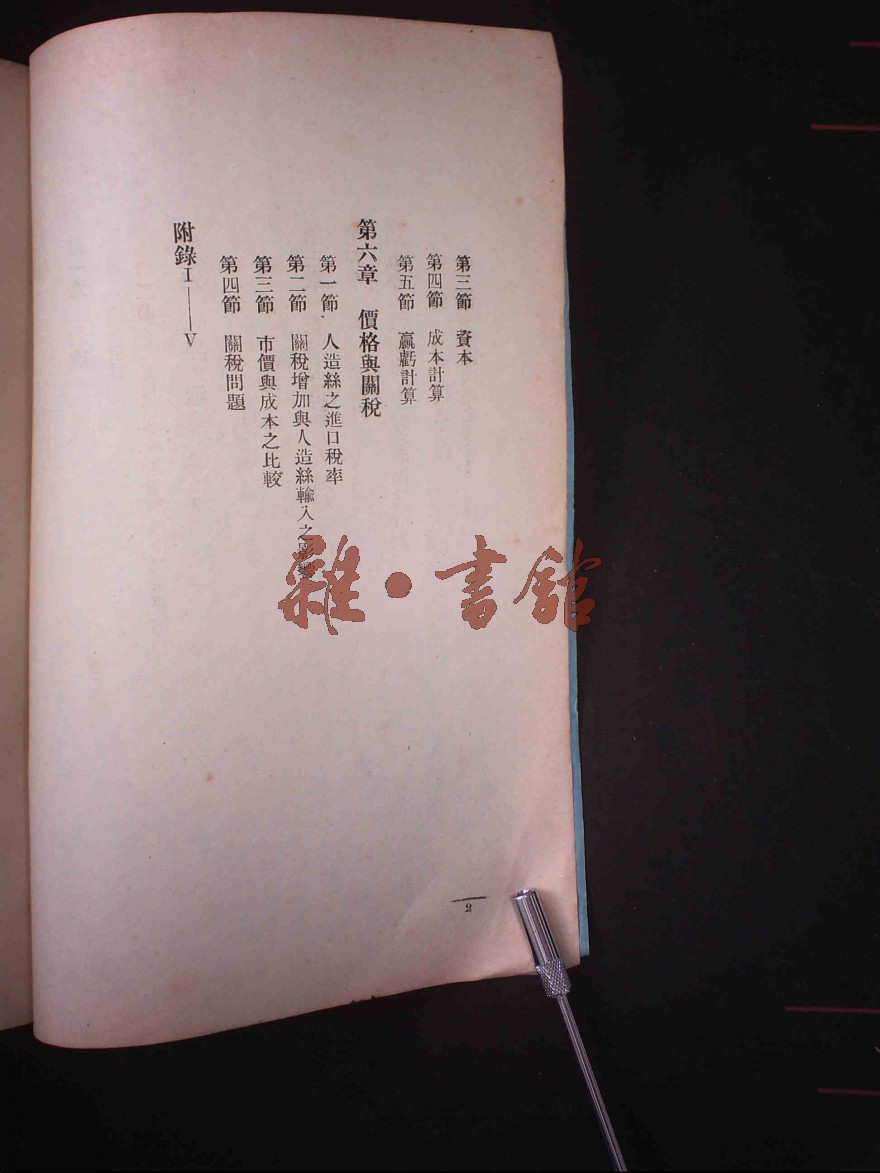 第三節　資本
第四節　成本計算
第五節　贏虧計算
第六章　價格與關稅
第一節.　人造絲之進口稅率
第二節　關稅增加與人造絲輸入之影響
第三節　市價與成本之比較
第四節　關稅問題
附錄I——V
2
雜·書館